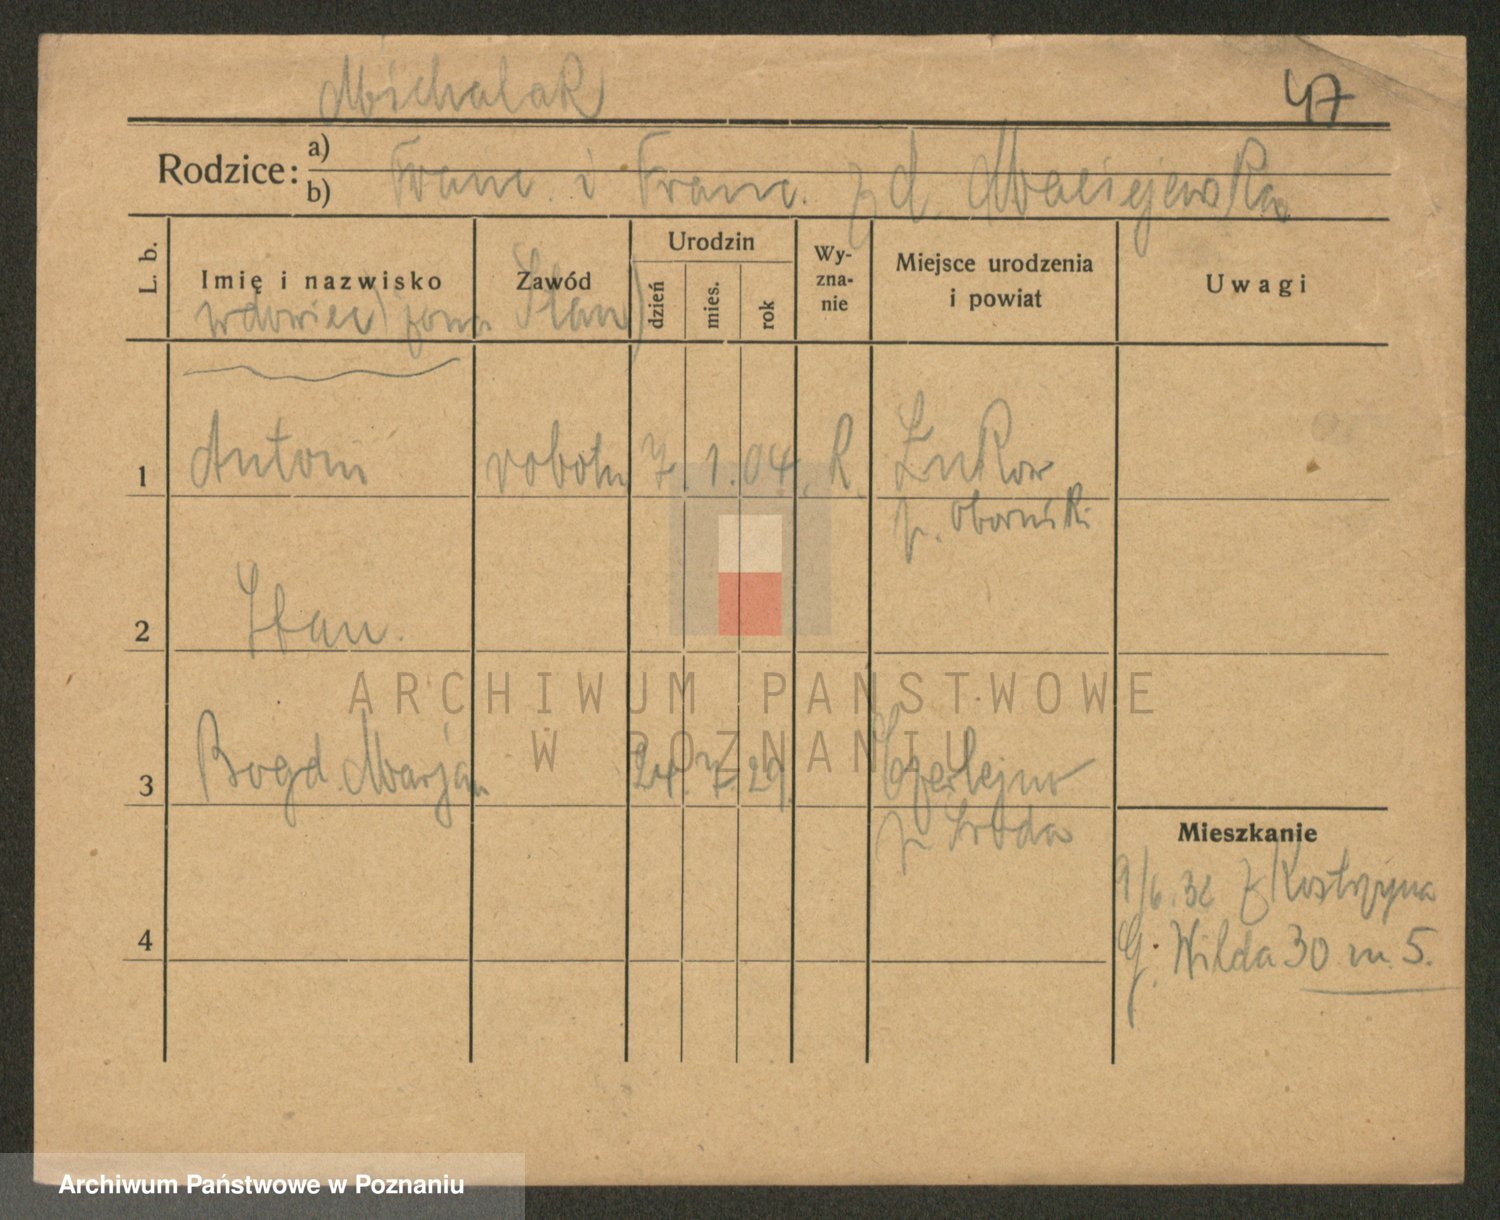 Michalak
47
Rodzice: a)
b) Franc. i Franc. z d. Maciejewska
L. b.
Imię i nazwisko
Zawód
Urodzin
dzień
mies.
rok
Wy-
zna-
nie
Miejsce urodzenia
i powiat
Uwagi
wdowiec) żona Stan)
1 Antoni robotn 7. 1. 04. R. Łukow
p. Obornski
2 Stan.
ARCHIWUM PAŃSTWOWE
W POZNANIU
3 Bogd. Marjan 24. 7. 29. Czerlejno
p. Sroda
Mieszkanie
9/6.32 z Kostrzyna
G. Wilda 30 m. 5.
4
Archiwum Państwowe w Poznaniu